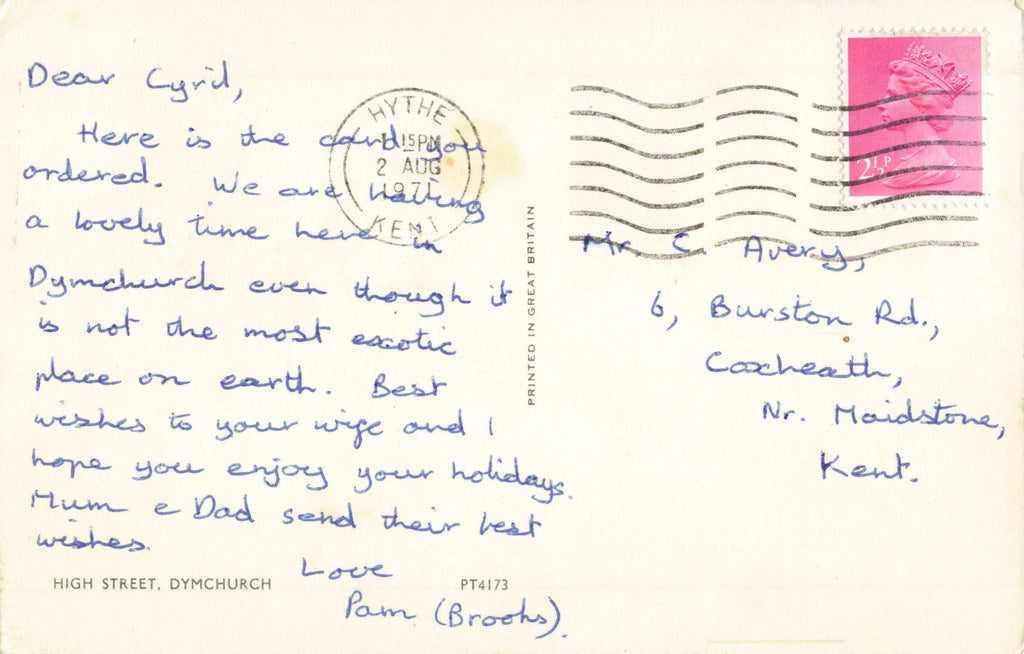 Dear Cyril,
Here is the card you
ordered. We are having
a lovely time here in
Dymchurch even though it
is not the most exotic
place on earth. Best
wishes to your wife and I
hope you enjoy your holidays.
Mum & Dad send their best
wishes.
Love
Pam (Brooks).
HIGH STREET, DYMCHURCH
PT4173
PRINTED IN GREAT BRITAIN
HYTHE
15 PM
2 AUG
1971
KENT
2½P
Mr. C. Avery,
6, Burston Rd.,
Coxheath,
Nr. Maidstone,
Kent.